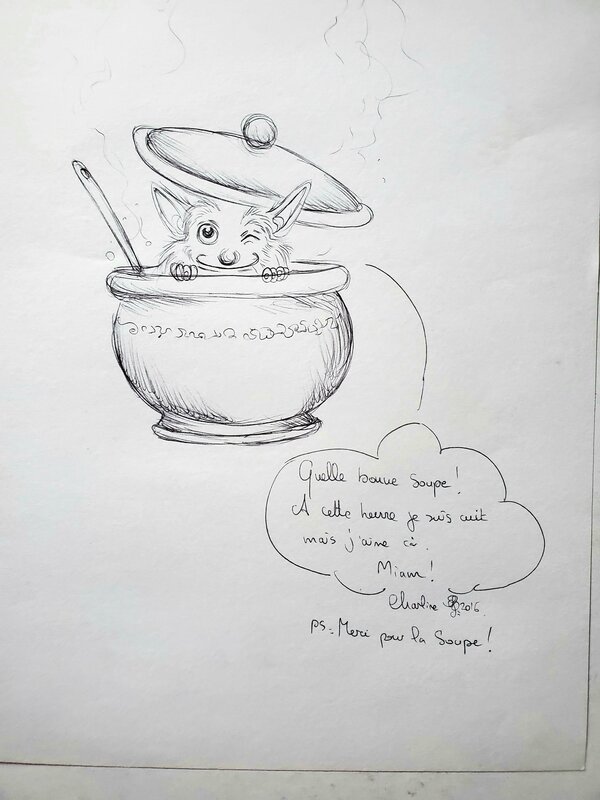 Quelle bonne Soupe !
A cette heure je suis cuit
mais j'aime çà.
Miam !
Charline 2016.
ps: Merci pour la Soupe !